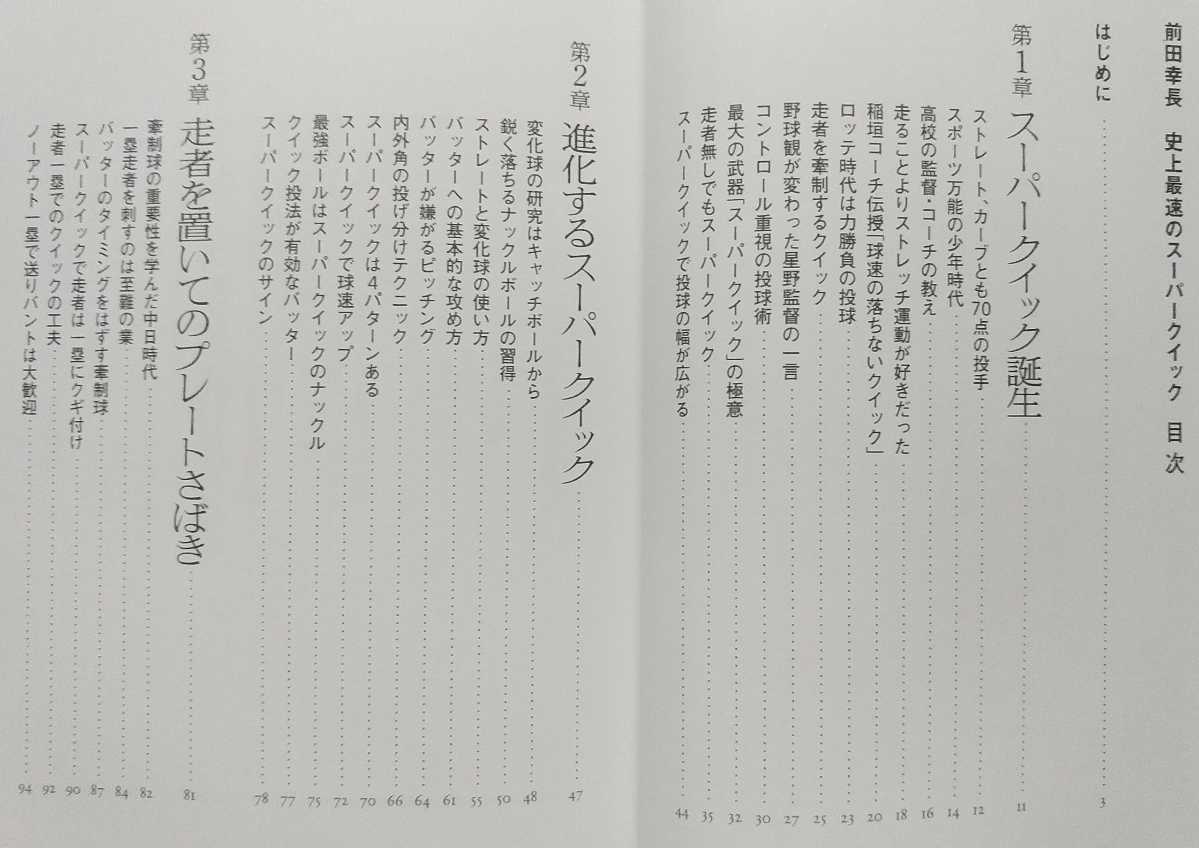 前田幸長 史上最速のスーパークイック 目次
はじめに 3
第1章 スーパークイック誕生 11
ストレート、カーブとも70点の投手 12
スポーツ万能の少年時代 14
高校の監督・コーチの教え 16
走ることよりストレッチ運動が好きだった 18
稲垣コーチ伝授「球速の落ちないクイック」 20
ロッテ時代は力勝負の投球 23
走者を牽制するクイック 25
野球観が変わった星野監督の一言 27
コントロール重視の投球術 30
最大の武器「スーパークイック」の極意 32
走者無しでもスーパークイック 35
スーパークイックで投球の幅が広がる 44
第2章 進化するスーパークイック 47
変化球の研究はキャッチボールから 48
鋭く落ちるナックルボールの習得 50
ストレートと変化球の使い方 55
バッターへの基本的な攻め方 61
バッターが嫌がるピッチング 64
内外角の投げ分けテクニック 66
スーパークイックは4パターンある 70
スーパークイックで球速アップ 72
最強ボールはスーパークイックのナックル 75
クイック投法が有効なバッター 77
スーパークイックのサイン 78
第3章 走者を置いてのプレートさばき 81
牽制球の重要性を学んだ中日時代 82
一塁走者を刺すのは至難の業 84
バッターのタイミングをはずす牽制球 87
スーパークイックで走者は一塁にクギ付け 90
走者一塁でのクイックの工夫 92
ノーアウト一塁で送りバントは大歓迎 94